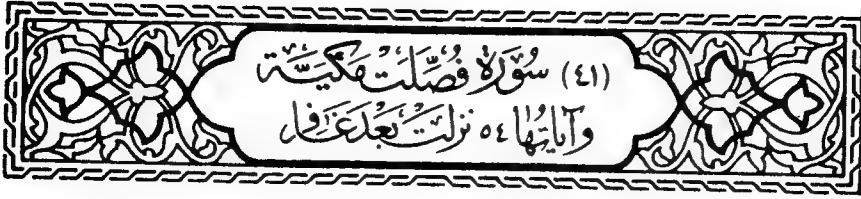 (٤١) سُوْرَةُ فُصِّلَتْ مَكيَّة
وَآيَاتُهَا ٥٤ نَزَلَتْ بَعْدَ غَافِر